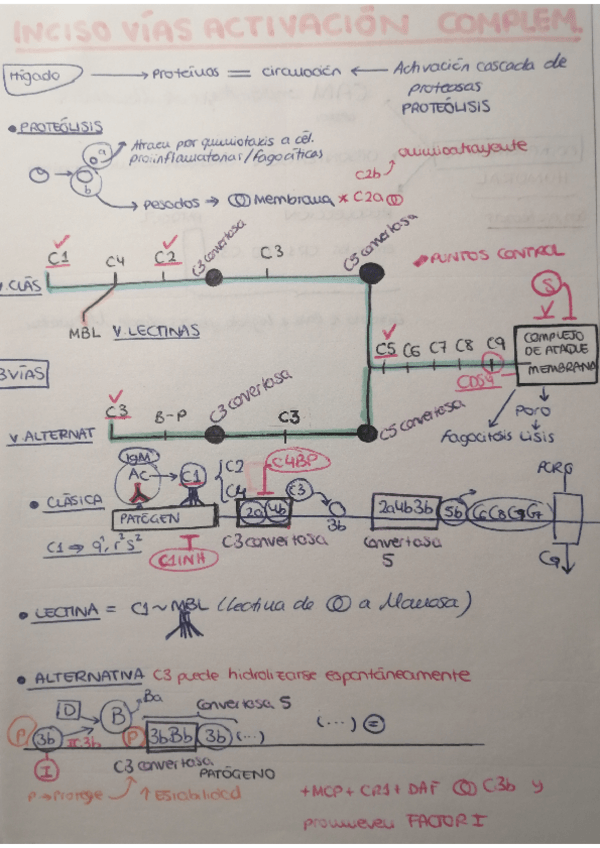 INCISO VÍAS ACTIVACIÓN COMPLEM.
Hígado → Proteínas = circulación ← Activación cascada de
proteasas
PROTEÓLISIS
• PROTEÓLISIS
a
b
Atraen por quimiotaxis a cél.
proinflamatorias/fagocíticas
Pesados → Membrana * C2a
c2b
quimioatrayente
C1
C4
C2
C3 convertosa
C3
C5 convertosa
PUNTOS CONTROL
V.CLÁS
MBL V. LECTINAS
S
C5 C6 C7 C8 C9
CD59
COMPLEJO
DE ATAQUE
MEMBRANA
3VÍAS
Poro
Fagocitosis Lisis
C3
B-P
C3 convertosa
C3
C5 convertosa
V ALTERNAT
• CLÁSICA
IgM
Ac
C1
C2
C4
C4BP
C3
2a 4b
3b
2a4b3b
5b
PATÓGEN
C3 convertosa
convertosa
5
C1 ⇒ q¹, r² s²
C1INH
• LECTINA = C1 ~ MBL (lectina de a Manosa)
• ALTERNATIVA C3 puede hidrolizarse espontáneamente
D
B
Ba
convertosa 5
P
3b
P
3bBb
3b
(...)
(...) =
I
C3 convertosa
PATÓGENO
P → Protege
↑ Estabilidad
+MCP + CR1 + DAF C3b y
promueven FACTOR I